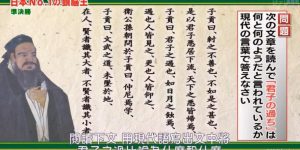 日本No.1の頭脳王
準決勝
問題
次の文章を読んで「君子の過ち」は
何と何のようだと言われているか
現代の言葉で答えなさい
子貢曰、紂之不善、不如是之甚也。
是以君子惡居下流、天下之惡皆歸焉。
子貢曰、君子之過也、如日月之食焉。
過也人皆見之、更也人皆仰之。
衛公孫朝問於子貢曰、仲尼焉學。
子貢曰、文武之道、未墜於地、
在人。賢者識其大者、不賢者識其
閱讀下文 用現代話寫出文中將